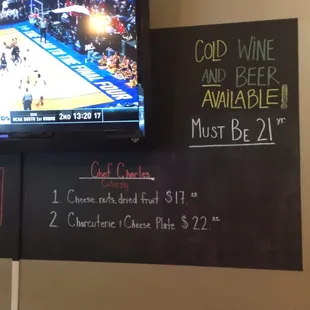 COLD WINE
AND BEER
AVAILABLE!
MUST BE 21 yr.
FINAL FOUR
NCAA SOUTH 1ST ROUND
2ND 13:20 17
Chef Charles
Catering
1. Cheese, nuts, dried fruit $17.00
2. Charcuterie & Cheese Plate $22.00